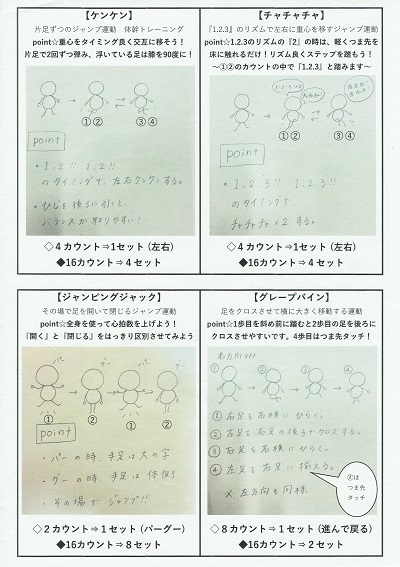 【ケンケン】
片足ずつのジャンプ運動　体幹トレーニング
point☆重心をタイミング良く交互に移そう！
片足で2回ずつ弾み、浮いている足は膝を90度に！
①② ③④
point
・1,2!! 1,2!!
のタイミングで、左右ケンケンする。
・ひじを後ろに引くと、
バランスが取りやすい！
◇4カウント⇒1セット（左右）
◆16カウント⇒4セット
【チャチャチャ】
『1.2.3』のリズムで左右に重心を移すジャンプ運動
point☆1.2.3のリズムの『2』の時は、軽くつま先を
床に触れるだけ！リズム良くステップを踏もう！
～①②のカウントの中で「1.2.3」と踏みます～
チャチャチャ!
①② ③④
point
・1,2,3!! 1,2,3!!
のタイミングで
チャチャチャ×2する。
◇4カウント⇒1セット（左右）
◆16カウント⇒4セット
【ジャンピングジャック】
その場で足を開いて閉じるジャンプ運動
point☆全身を使って心拍数を上げよう！
『開く』と『閉じる』をはっきり区別させてみよう
パー グー パー グー
① ② ① ②
point
・パーの時、手足は大の字
・グーの時、手足は体側!
・その場でジャンプ!!
◇2カウント⇒1セット（パーグー）
◆16カウント⇒8セット
【グレープバイン】
足をクロスさせて横に大きく移動する運動
point☆1歩目を斜め前に踏むと2歩目の足を後ろに
クロスさせやすいです。4歩目はつま先タッチ！
右方向ver
① ② ③ ④
① 右足を右横にひらく。
② 左足を右足の後ろでクロスする。
③ 右足を右横にひらく。
④ 左足を右足に揃える。
※左方向も同様
④は
つま先
タッチ
◇8カウント⇒1セット（進んで戻る）
◆16カウント⇒2セット